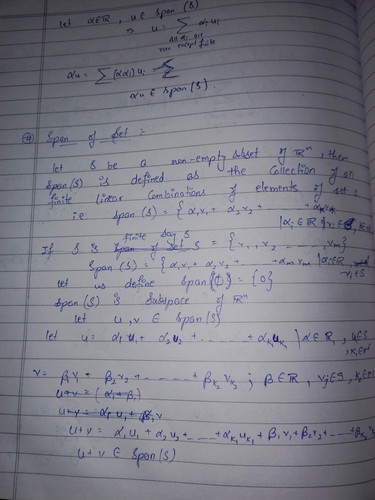 let α∈ℝ, u∈ Span (S)
⇒ u = Σ αᵢ uᵢ
All αᵢ are
zero except finite
αu = Σ (ααᵢ) uᵢ = Σ
αu ∈ Span (S).
Span of Set :
let S be a non-empty subset of ℝⁿ, then
Span(S) is defined as the collection of all
finite linear combinations of elements of set :
i.e Span (S) = { α₁v₁ + α₂v₂ + + αₖvₖ
| αᵢ ∈ ℝ vᵢ ∈ S,
finite say S
If S is Span of set S = {v₁, v₂ ------, vₘ}
Span (S) = { α₁v₁ + α₂v₂ + ...... + αₘ vₘ | αᵢ∈ℝ
vᵢ∈S
let us define Span(ϕ) = {0}
Span (S) is Subspace of ℝⁿ
let u, v ∈ Span (S)
let u = α₁ u₁ + α₂ u₂ + ...... + αₖ₁ uₖ₁ | α∈ℝ, uᵢ∈S
, k₁∈ℕ
v = β₁ v₁ + β₂ v₂ + ...... + βₖ₂ vₖ₂ ; β∈ℝ, vⱼ∈S, k₂∈ℕ
u+v = (α₁ + β₁)
u+v = α₁ u₁ + β₁ v
u+v = α₁ u₁ + α₂ u₂ + ...... + αₖ₁ uₖ₁ + β₁ v₁ + β₂ v₂ + ...... + βₖ₂ vₖ₂
u+v ∈ Span (S)